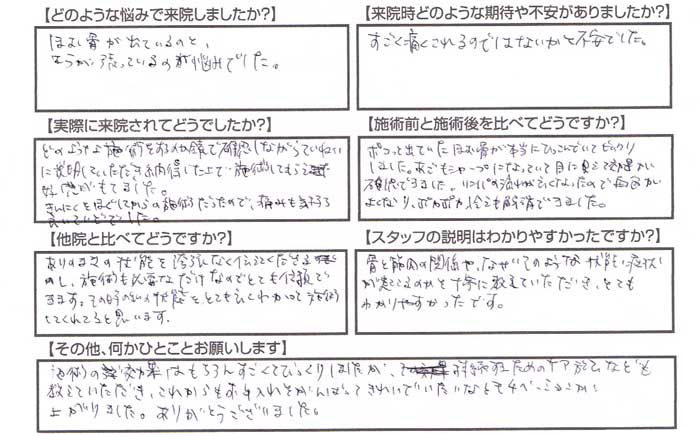 【どのような悩みで来院しましたか?】
ほお骨が出ているのと、
えらが張っているのが悩みでした。
【来院時どのような期待や不安がありましたか?】
すごく痛くされるのではないかと不安でした。
【実際に来院されてどうでしたか?】
どのような施術をするか鏡で確認しながらていねい
に説明していただき納得した上で施術してもらえ
好感がもてました。
きんにくをほぐしてからの施術だったので、痛みも
【施術前と施術後を比べてどうですか?】
ポコっと出ていたほお骨が本当にひっこんでいてビックリ
しました。あごもシャープになっていて目に見えて効果が
確認できました。リンパの流れがよくなったので顔色が
よくなり、ポカポカ冷えも解消できました。
【他院と比べてどうですか?】
ありのままの状態を誇張なく伝えてくださる
し、施術も必要なだけなのでとても信頼で
きます。その時の状態をとてもよくわかって施術
してくれてると思います。
【スタッフの説明はわかりやすかったですか?】
骨と筋肉の関係や、なぜこのような状態、症状
が起こるのかを丁寧に教えていただいき、とても
わかりやすかったです。
【その他、何かひとことお願いします】
施術の効果はもちろんすごくてびっくりしましたが、持続するためのケア方法なども
教えていただき、これからもお手入れをがんばってきれいでいたいなとモチベーションが
上がりました。ありがとうございました。